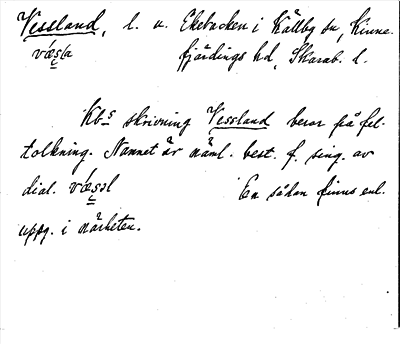 Vissland, l. u. Ekebacken i Källby sn, Kinne-
væsla fjärdings hd, Skarab. l.
Kbs skrivning Vissland beror på fel-
tolkning. Namnet är näml. best. f. sing. av
dial. væssl En sådan finns enl.
uppg. i närheten.